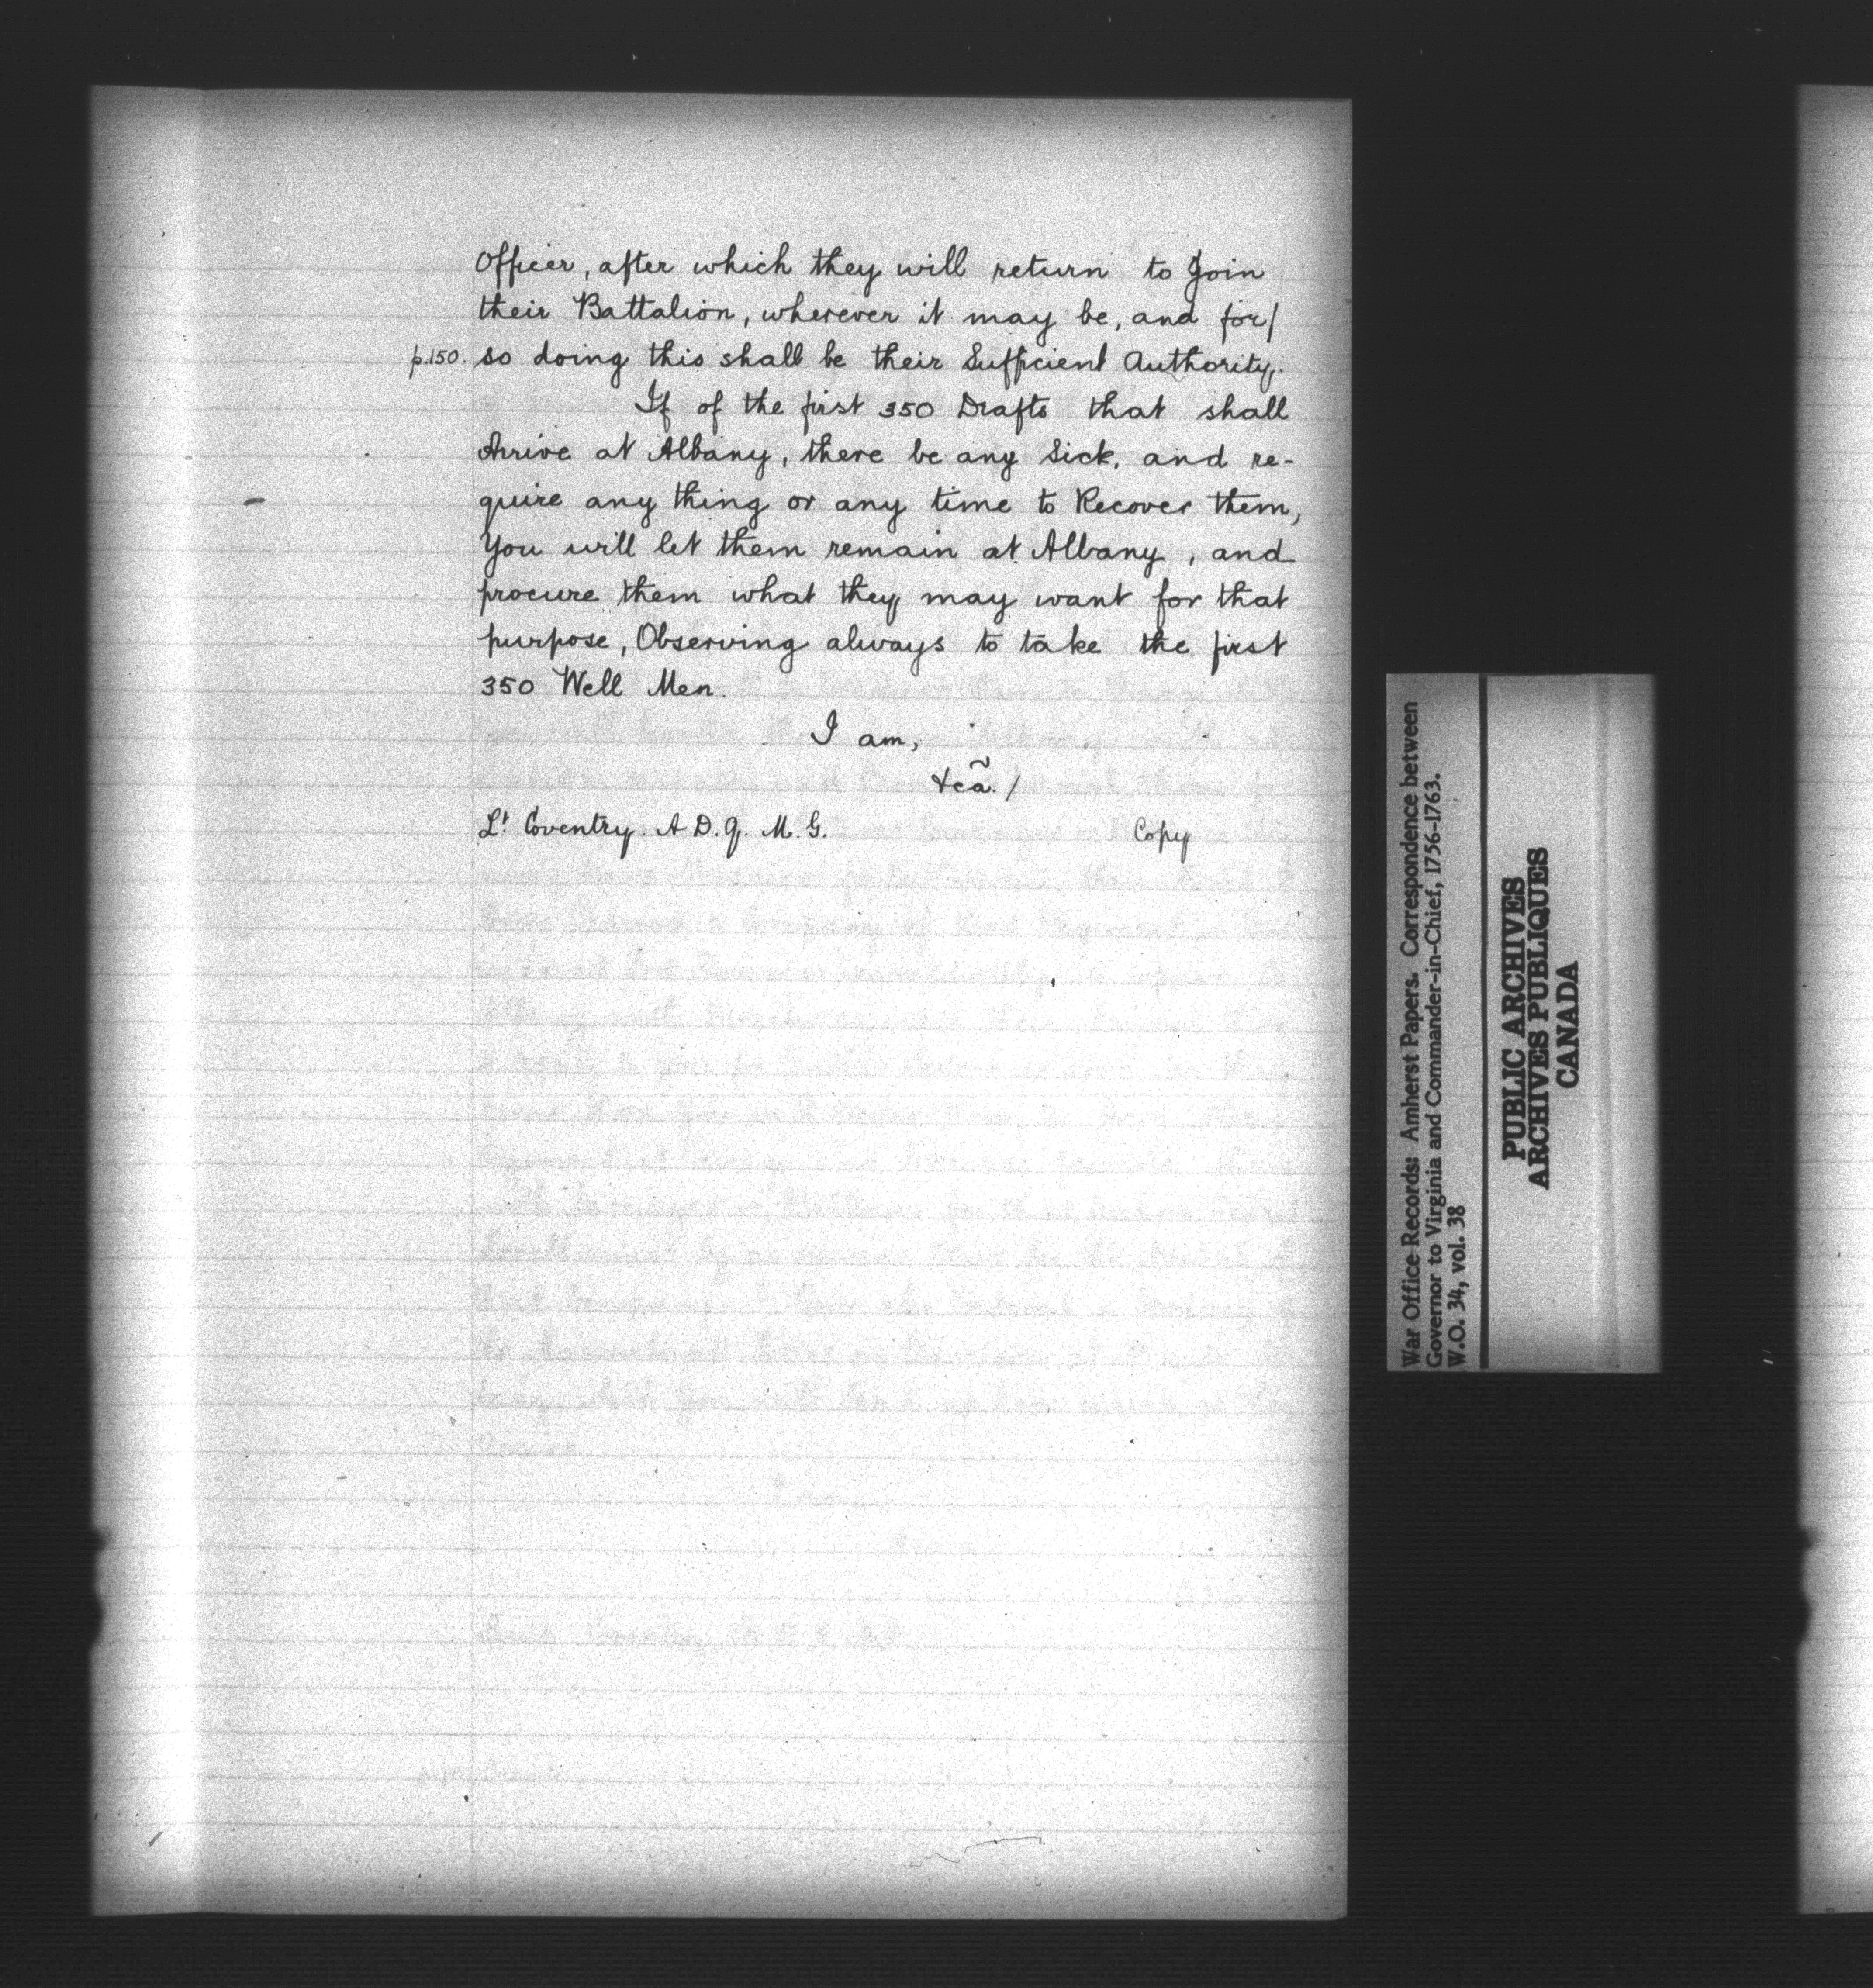 Officer, after which they will return to Join
their Battalion, wherever it may be, and for/
p.150. so doing this shall be their Sufficient Authority.
If of the first 350 Drafts that shall
Arrive at Albany, there be any Sick, and re-
quire any thing or any time to Recover them,
You will let them remain at Albany, and
procure them what they may want for that
purpose, Observing always to take the first
350 Well Men.
I am,
&cã. /
Lt. Coventry. A D. Q. M. G. Copy
War Office Records: Amherst Papers. Correspondence between
Governor to Virginia and Commander-in-Chief, 1756-1763.
W.O. 34, vol. 38
PUBLIC ARCHIVES
ARCHIVES PUBLIQUES
CANADA